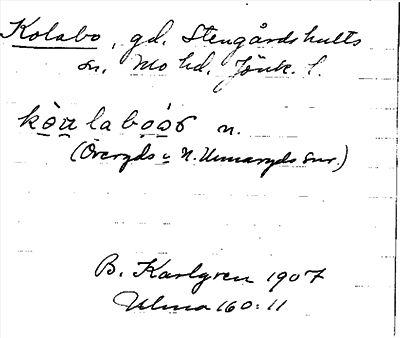 Kolabo, gd. Stengårdshults
sn. Mo hd. Jönk. l.
n.
(Öreryds o. N. Unnaryds snr.)
B. Karlgren 1907
Ulma 160:11